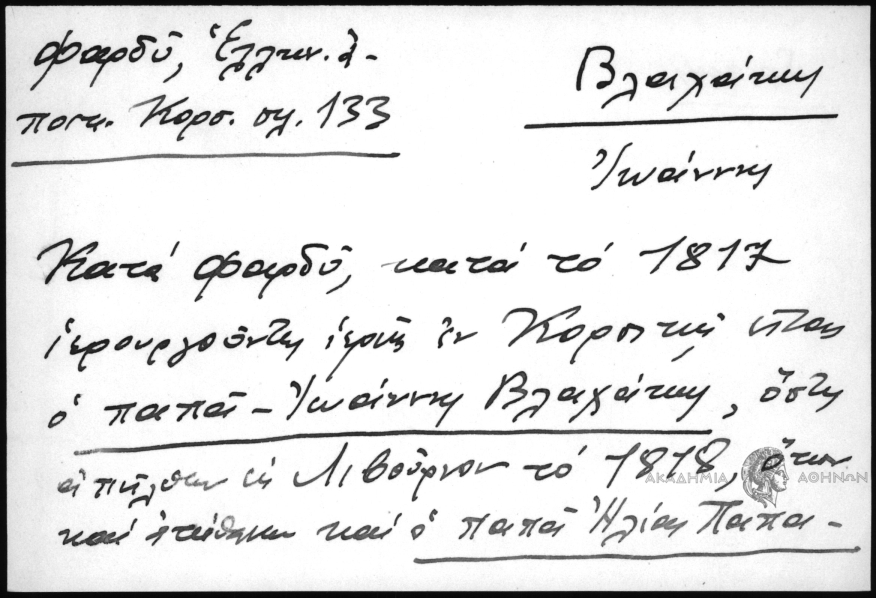 Φαρδῦ, Ἑλλην. ἀ-
ποικ. Κορσ. σελ. 133
Βλαχάκης
Ἰωάννης
Κατά Φαρδῦ, κατά τό 1817
ἱερουργοῦντες ἱερεῖς ἐν Κορσικῇ ἦσαν
ὁ παπᾶ-Ἰωάννης Βλαχάκης, ὅστις
ἀπῆλθεν εἰς Λιβοῦρνον τό 1818, ὅπου
καί ἐτάφη καί ὁ παπᾶ Ἠλίας Παπα-
ΑΚΑΔΗΜΙΑ ΑΘΗΝΩΝ